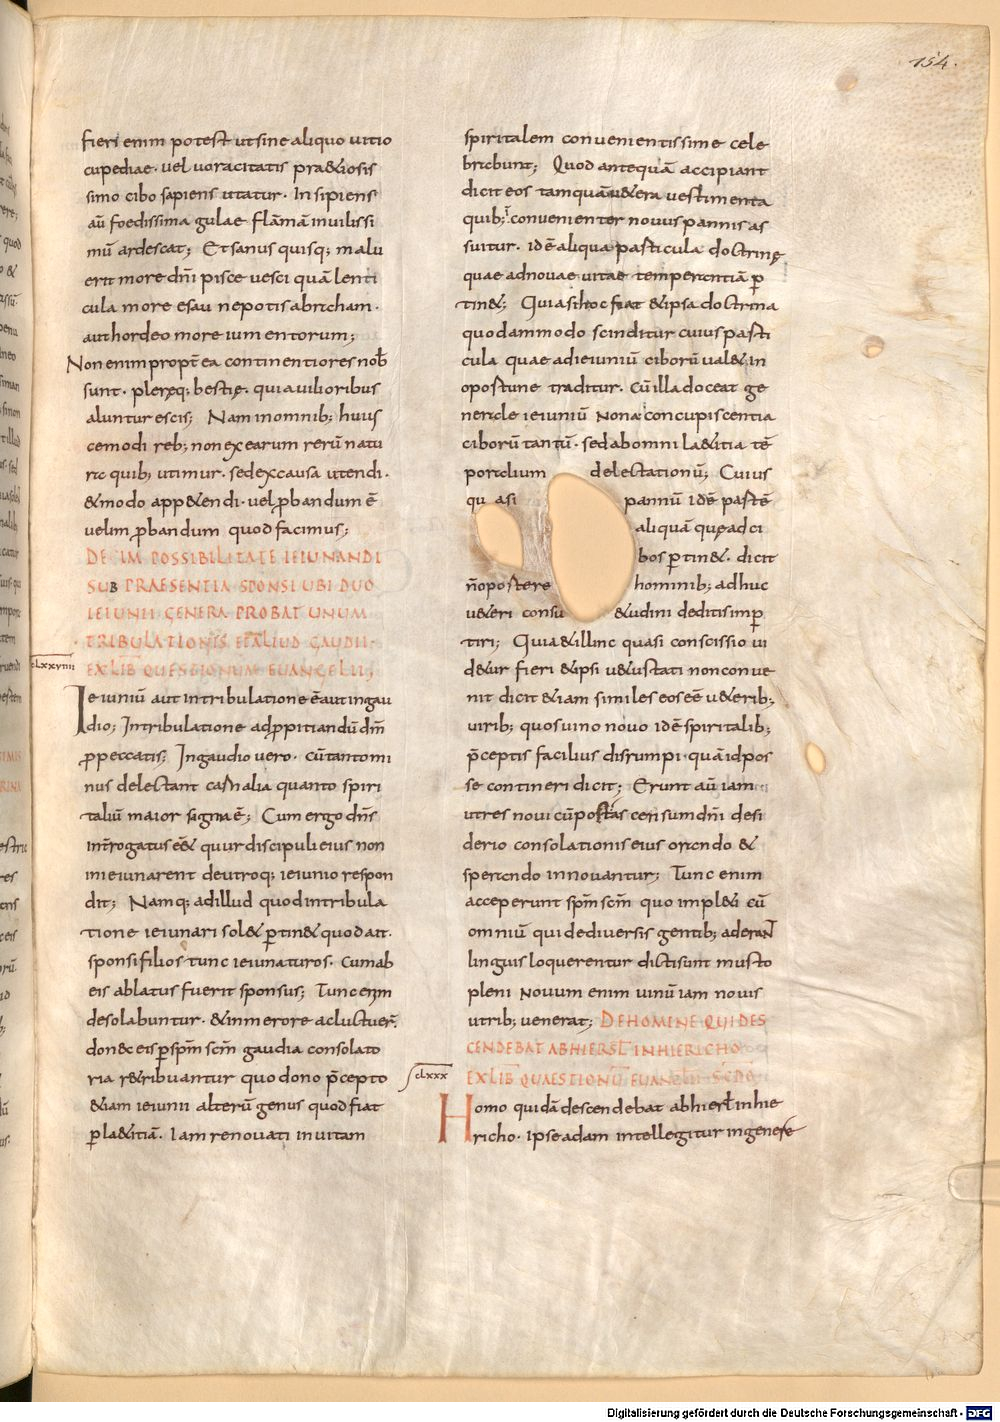 154.
fieri enim potest ut sine aliquo uitio
cupediae· uel uoracitatis pra&iosis
simo cibo sapiens utatur· Insipiens
aū foedissima gulae flāmā inuilissi
mū ardescat; Et sanus quisq; malu
erit more dn̄i pisce uesci quā lenti
cula more esau nepotis abraham·
aut hordeo more iumentorum;
Non enim propt̄ ea continentiores nob̄
sunt· pleręq; bestię· quia uilioribus
aluntur escis; Nam in omnib; huius
cemodi reb; non ex earum rerū natu
ra quib; utimur· sed ex causa utendi·
& modo app&endi· uel p̱bandum ē
uel inp̱bandum quod facimus;
DE IMPOSSIBILITATE IEIUNANDI
SUB PRAESENTIA SPONSI UBI DUO
IEIUNII GENERA PROBAT UNUM
TRIBULATIONIS ET ALIUD GAUDII·
clxxviiii EX LIB̄ QUESTIONUM EUANGELII;
Ieiuniū aut in tribulatione ē aut in gau
dio; In tribulatione ad p̱pitiandū dm̄
p̱ peccatis; In gaudio uero· cū tanto mi
nus delectant carnalia quanto spiri
taliū maior sagina ē; Cum ergo dn̄s
int̄rogatus ē& quur discipuli eius non
in ieiunarent de utroq; ieiunio respon
dit; Namq; ad illud quod in tribula
tione ieiunari sol& p̱tin& quod ait·
sponsi filios tunc ieiunaturos· Cum ab
eis ablatus fuerit sponsus; Tunc enim
desolabuntur· & in merore ac luctu er̄·
donec eis p̱ spm̄ scm̄ gaudia consolato
ria r&ribuantur quo dono p̄cepto
&iam ieiunii alterū genus quod fiat
p̱ la&itiā· Iam renouati in uitam
spiritalem conuenientissime cele
brabunt; Quod antequā accipiant
dicit eos tamquā u&era uestimenta
quib; conuenienter nouus pannis as
suitur· idē aliqua particula doctrinę
quae ad nouae uitae temperantiā p̱
tin&; Quia si hoc fiat & ipsa doctrina
quodammodo scinditur cuius parti
cula quae ad ieiuniū ciborū ual& in
oportune traditur· Cū illa doceat ge
nerale ieiuniū non a concupiscentia
ciborū tantū· sed ab omni la&itia tē
poralium delectationū; Cuius
quasi pannū idē partē
aliquā quę ad ci
bos p̱tin&· dicit
n̄ oportere hominib; adhuc
u&eri consu&udini deditis imp̱
tiri; Quia & illinc quasi conscissio ui
d&ur fieri & ipsi u&ustati non conue
nit dicit &iam similes eos eē u&erib;
utrib; quos uino nouo idē spiritalib;
p̄ceptis facilius disrumpi quā id pos
se contineri dicit; Erunt aū iam
utres noui cū post ascensum dn̄i desi
derio consolationis eius orando &
sperando innouantur; Tunc enim
acceperunt spm̄ scm̄ quo impl&i cū
omniū qui de diuersis gentib; aderant
linguis loquerentur dicti sunt musto
pleni Nouum enim uinū iam nouis
utrib; uenerat; DE HOMINE QUI DES
CENDEBAT AB HIERSL̄ IN HIERICHO
clxxx EX LIB̄ QUAESTIONŪ EUANGL̄II SCDO
Homo quidā descendebat ab hierl̄ in hie
richo· ipse adam intellegitur in genere
Digitalisierung gefördert durch die Deutsche Forschungsgemeinschaft - DFG